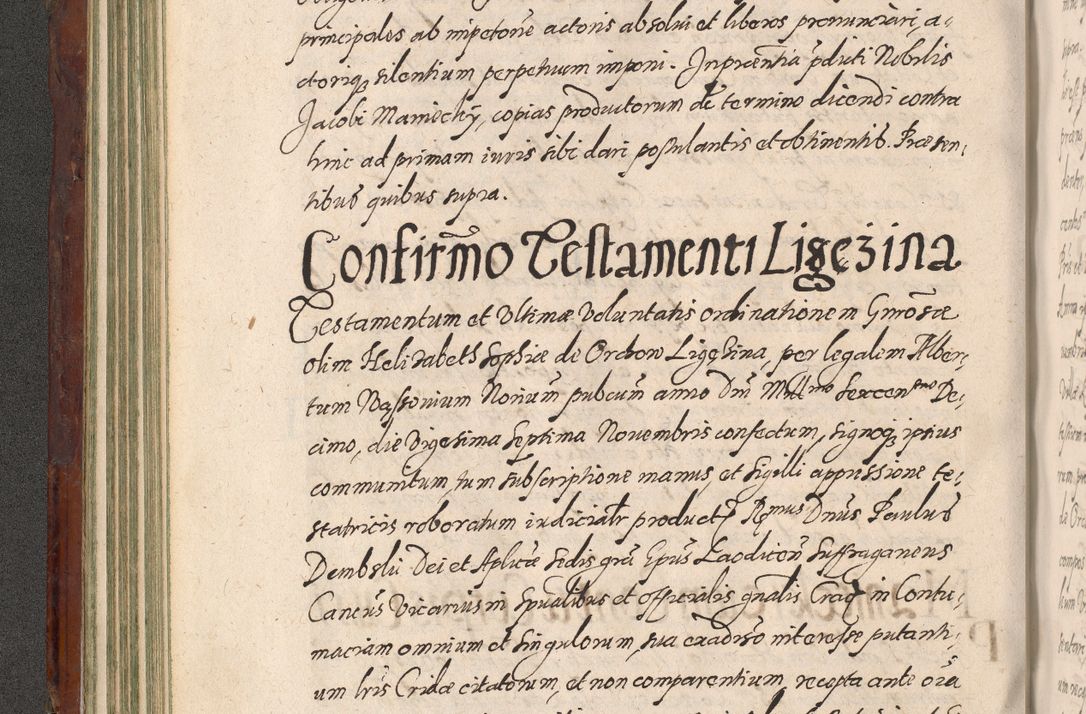 principales ab impetone actoris absolvi et liberos pronunciari, a-
ctoriq silentium perpetuum imponi. Inpræntia pduti Nobilis
Jacobi Maniecky, copias productorum de termino dicendi contra
hinc ad primam iuris sibi dari postulantis et obtinentib. Præsen-
tibus quibus supra.
Confirmo Testamenti Ligęzina
Testamentum et Ultimæ Voluntatis ordinationem Gnrosæ
olim Helizabeth Sophiæ de Orchow Ligęzina, per legalem Alber-
tum Wąssonium Norium pubcum anno Dni Millmo Sexcenstmo De-
cimo, die Vigesima Septima Novembris confectum, signoq ipsius
communitum, tum subscriptione manus, et sigilli appressione te-
statricis roboratum iudicialr product Rmus Dnus Paulus
Dembski Dei et Aplicæ sedis gra Epus Laodicen Suffraganeus
Caneus Vicarius in spualibus et officialis gnalis Crac in Contu-
maciam omnium et singulorum, sua exadiso interesse putanti-
um lris Cridæ citatorum, et non comparentium, recepta ante ora